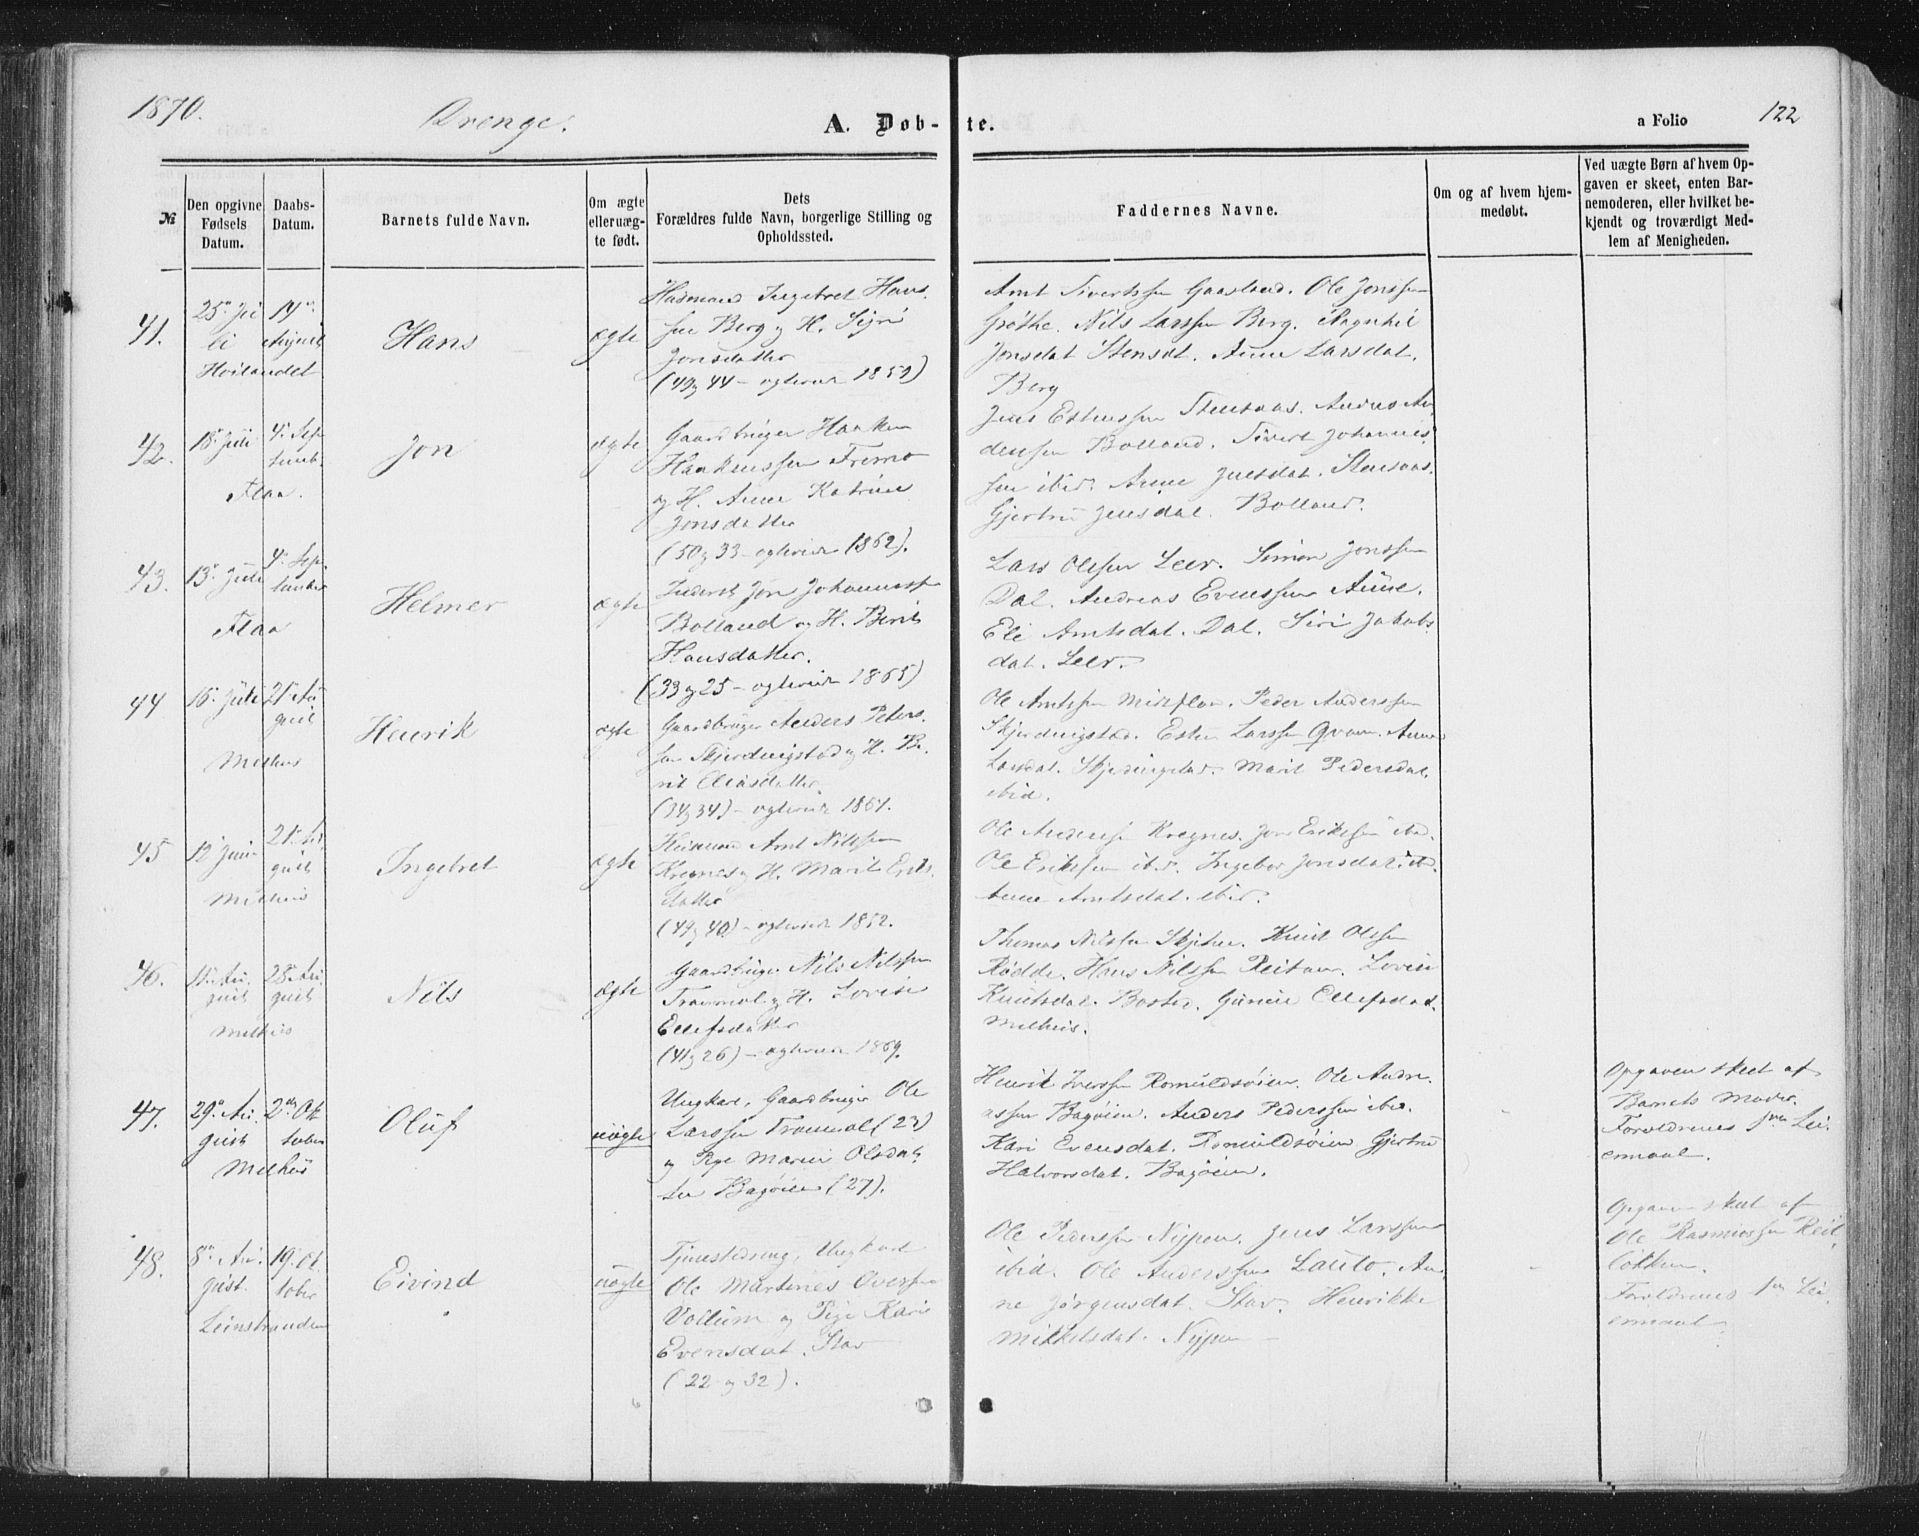 1870.
Drenge.
A. Døb-
te.
a Folio
122
№
Den opgivne
Fødsels
Datum.
Daabs-
Datum.
Barnets fulde Navn.
Om ægte
elleruæg-
te født.
Dets
Forældres fulde Navn, borgerlige Stilling og
Opholdssted.
Faddernes Navne.
Om og af hvem hjem-
medøbt.
Ved uægte Børn af hvem Op-
gaven er skeet, enten Bar-
nemoderen, eller hvilket be-
kjendt og troværdigt Med-
lem af Menigheden.
41.
25de Ju
li
Høilandet
14de
August
Hans
ægte
Husmand Ingebret Hans
sen Berg og H. Sigri
Jonsdatter
(49 og 44 – ægteviede 1852)
Arnt Sivertsen Gaasland. Ole Jonssen
Grøthe. Nils Larssen Berg. Ragnhil
Jonsdat Stensdt. Anne Larsdat.
Berg
42.
18 Juli
Flaa.
4de Sep
temb.
Jon
ægte
Gaardbruger Haaken
Haakenssen Fremo
og H. Anne Katrine
Jonsdatter
(50 og 33 – ægteviede 1862).
Jens Estenssen Stensaas. Anders An
derssen Bolland. Sivert Johannes
sen ibid. Anne Jensdat. Stensaas.
Gjertru Jensdat. Bolland.
43.
13de Juli
Flaa
4de Sep
tember
Helmer
ægte
Inderst Jon Johannessen
Bolland og H. Berit
Hansdatter.
(33 og 25 – ægteviede 1865)
Lars Olssen Leer. Simon Jonssen
Dal. Andreas Evenssen Aune.
Eli Arntsdat. Dal. Siri Jakobs
dat. Leer.
44
16de Juli
Melhus
21de Au
gust
Henrik
ægte
Gaardbruger Anders Peters
sen Skjerdingstad og H. Be
rit Eliasdatter.
(34 og 34) – ægteviede 1867.
Ole Arntssen Midtflaa. Peder Anderssen
Skjerdingstad. Esten Larssen Qvam. Anne
Larsdat. Skjerdingstad. Marit Pedersdat.
ibid.
45
12 Juni
Melhus
21de Au
gust
Ingebret
ægte
Husmand Arnt Nilssen
Kregnes og H. Marit Eriks
datter
(49 og 40) – ægteviede 1852.
Ole Anderssen Kregnes. Jon Eriksen ibid.
Ole Eriksen ibid. Ingebor Jonsdat ibid.
Anne Arntsdat. ibid.
46.
11de Au
gust
Melhus
28de Au
gust
Nils
ægte
Gaardbruger Nils Nilssen
Tranmæl og H. Lovise
Ellefsdatter
(41 og 26) – ægteviede 1869.
Thomas Nilssen Skjetne. Knut Olssen
Rødde. Hans Nilssen Reitan. Lovise
Knutsdat. Bosted. Gunnil Ellefsdat.
Melhus.
47.
29de Au
gust
Melhus
2den Ok
tober
Oluf
uægte
Ungkarl, Gaardbruger Ole
Larssen Tranmæl (23)
og Pige Marie Olsdat
ter Bagøien (27).
Henrik Iverssen Romuldsøien. Ole Andre
assen Bagøien. Anders Pederssen ibid.
Kari Evensdat. Romuldsøien Gjertru
Halvorsdat. Bagøien.
Opgaven skeet af
Barnets Moder.
Forældrenes 1ste Lei
ermaal.
48.
8de Au
gust.
Leinstranden
19. Ok
tober
Eivind
uægte
Tjenestedreng, Ungkarl
Ole Martines Iverssen
Vollum og Pige Karie
Evensdat. Stav
(22 og 32).
Ole Pederssen Nypen. Jens Larssen
ibid. Ole Anderssen Lauto. An
ne Jørgensdat. Stav. Henrikke
Mikkelsdat. Nypen
Opgaven skeet af
Ole Rasmussen Reit
løkken.
Forældrenes 1ste Lei
ermaal.